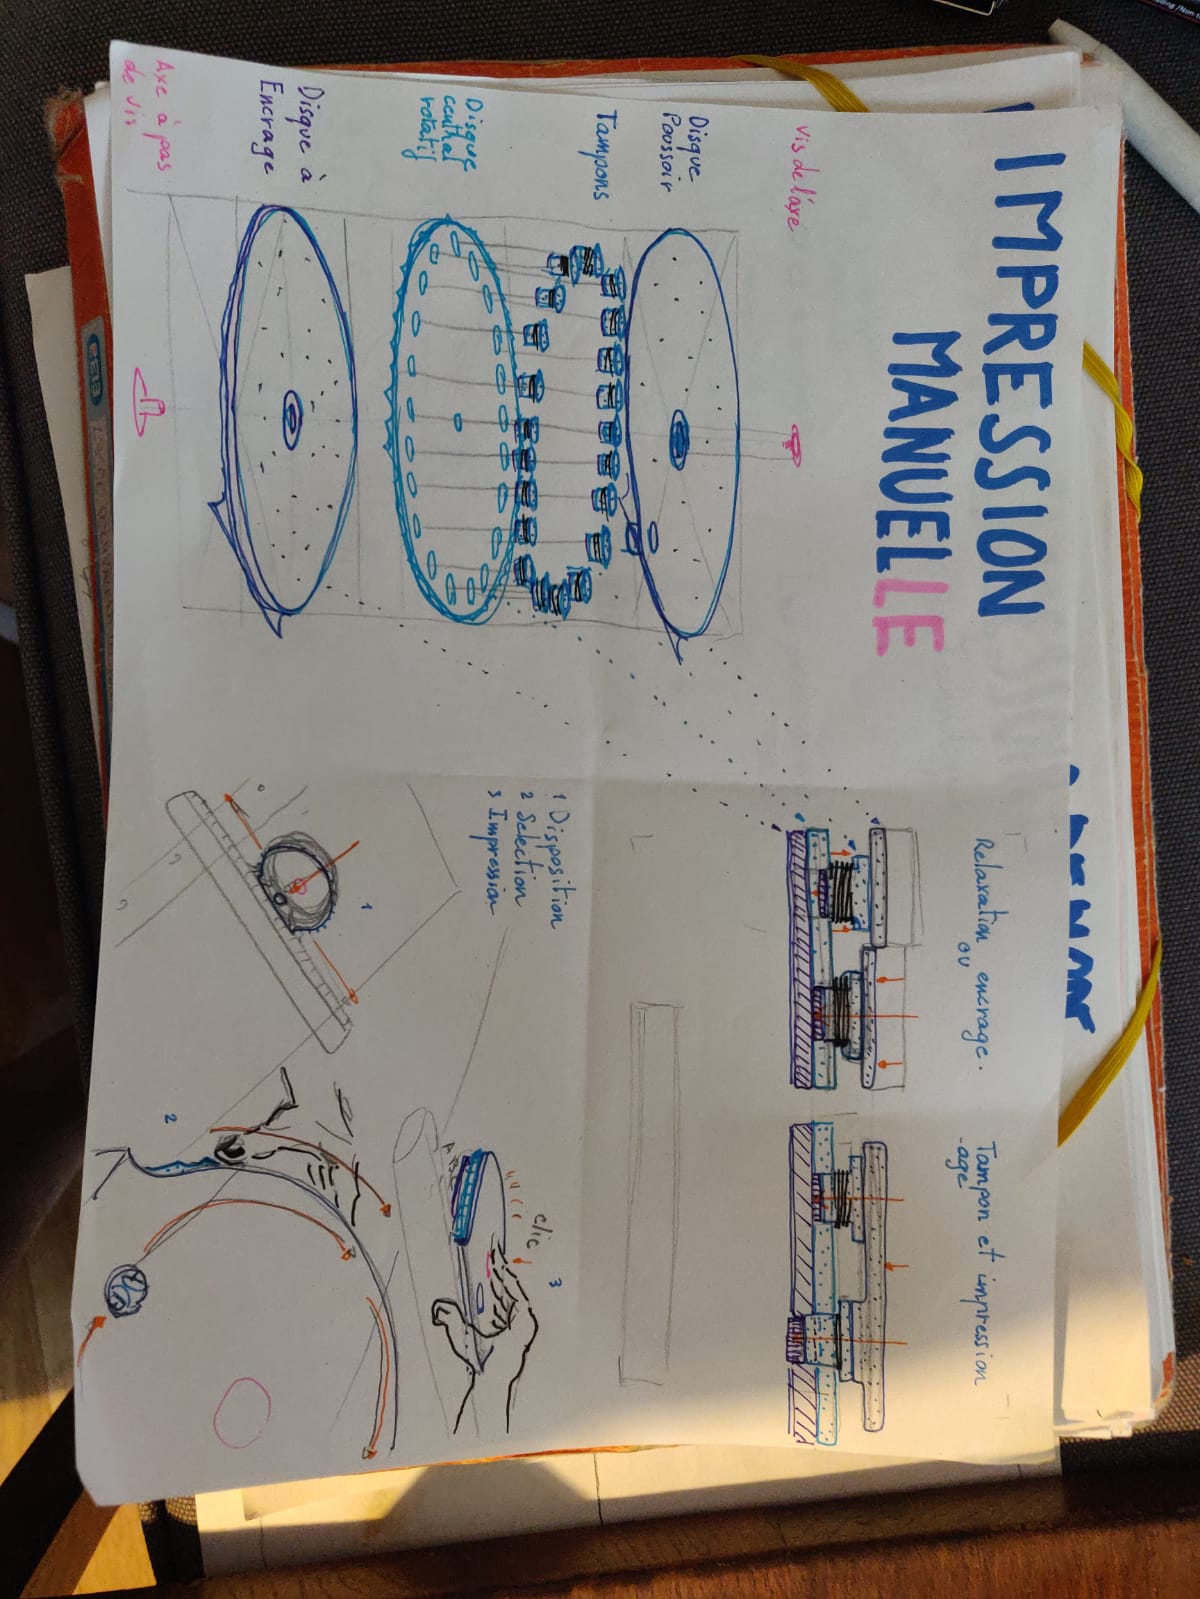 IMPRESSION
MANUELLE
Vis de l'axe
Disque
Poussoir
Tampons
Disque
central
rotatif
Disque à
Encrage
Axe à pas
de vis
Relaxation encrage.
ou
Tampon et impression
-age
1 Disposition
2 Selection
3 Impression
1
2
3
clic